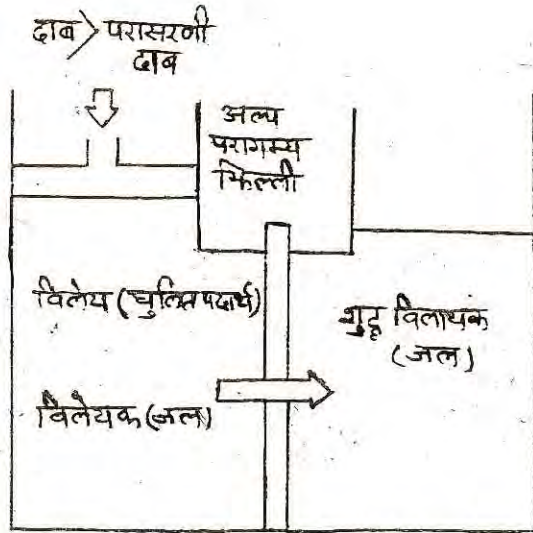 दाब > परासरणी
दाब
अल्प
परागम्य
झिल्ली
विलेय (घुलित पदार्थ)
विलेयक (जल)
शुद्ध विलायक
(जल)